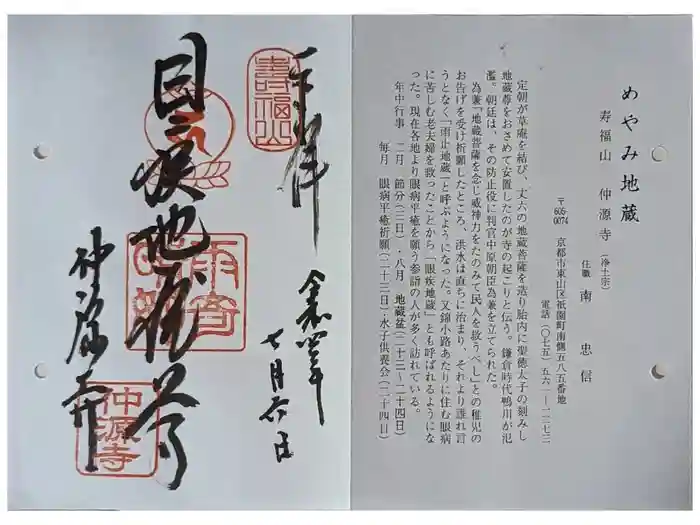 めやみ地蔵
寿福山　仲源寺（浄土宗）
住職　南　忠信
〒605-0074　京都市東山区祇園町南側五八五番地
電話（〇七五）五六一―一二七三
定朝が草庵を結び、丈六の地蔵菩薩を造り胎内に聖徳太子の刻みし
地蔵尊をおさめて安置したのが寺の起こりと伝う。鎌倉時代鴨川が氾
濫。朝廷は、その防止役に判官中原朝臣為兼を立てられた。
為兼「地蔵菩薩を念じ威神力をたのみて民人を救うべし」との稚児の
お告げを受け祈願したところ、洪水は直ちに治まり、それより誰れ言
うとなく「雨止地蔵」と呼ぶようになった。又錦小路あたりに住む眼病
に苦しむ老夫婦を救ったことから「眼疾地蔵」とも呼ばれるようにな
った。現在各地より眼病平癒を願う参詣の人が多く訪れている。
年中行事　二月　節分（三日）・八月　地蔵盆（二十三～二十四日）
毎月　眼病平癒祈願（二十三日）・水子供養会（二十四日）
奉拝
壽福山
七月六日
目疾地蔵尊
雨奇
仲源寺
仲源寺